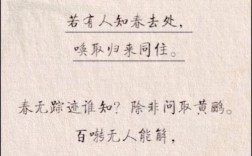 若有人知春去处，
唤取归来同住。
春无踪迹谁知？除非问取黄鹂。
百啭无人能解，